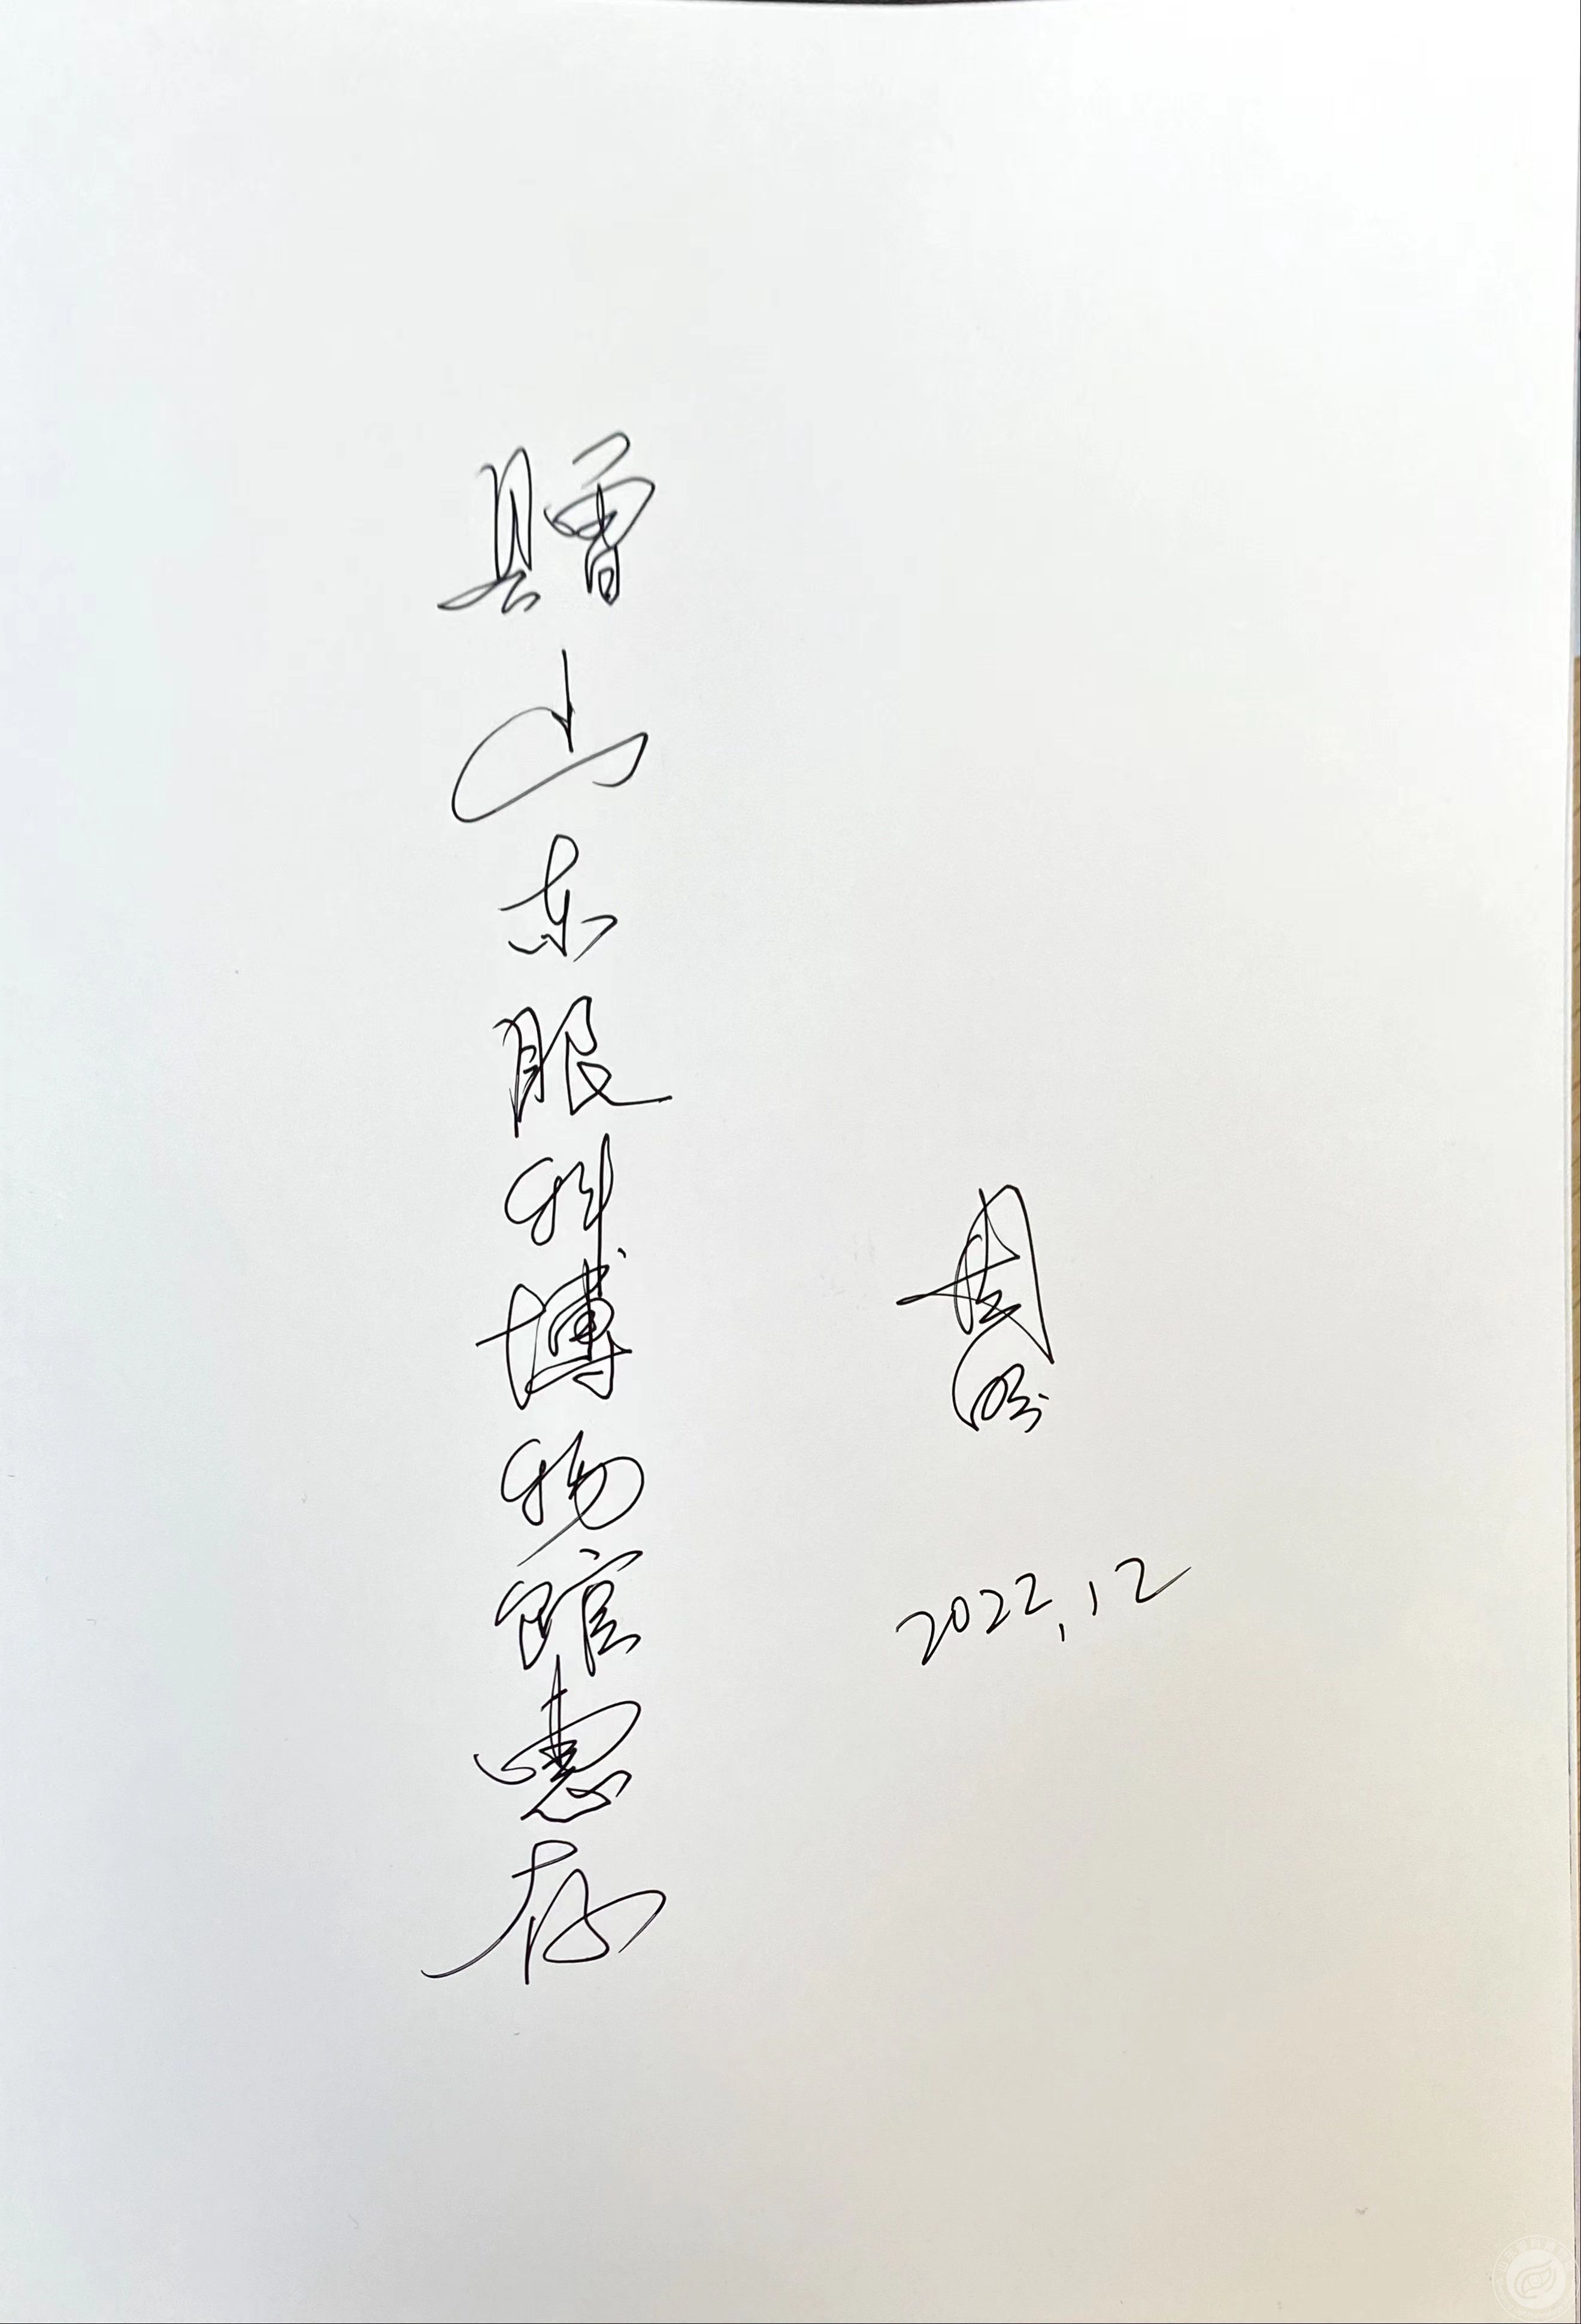 赠山东眼科博物馆惠存
周
2022.12